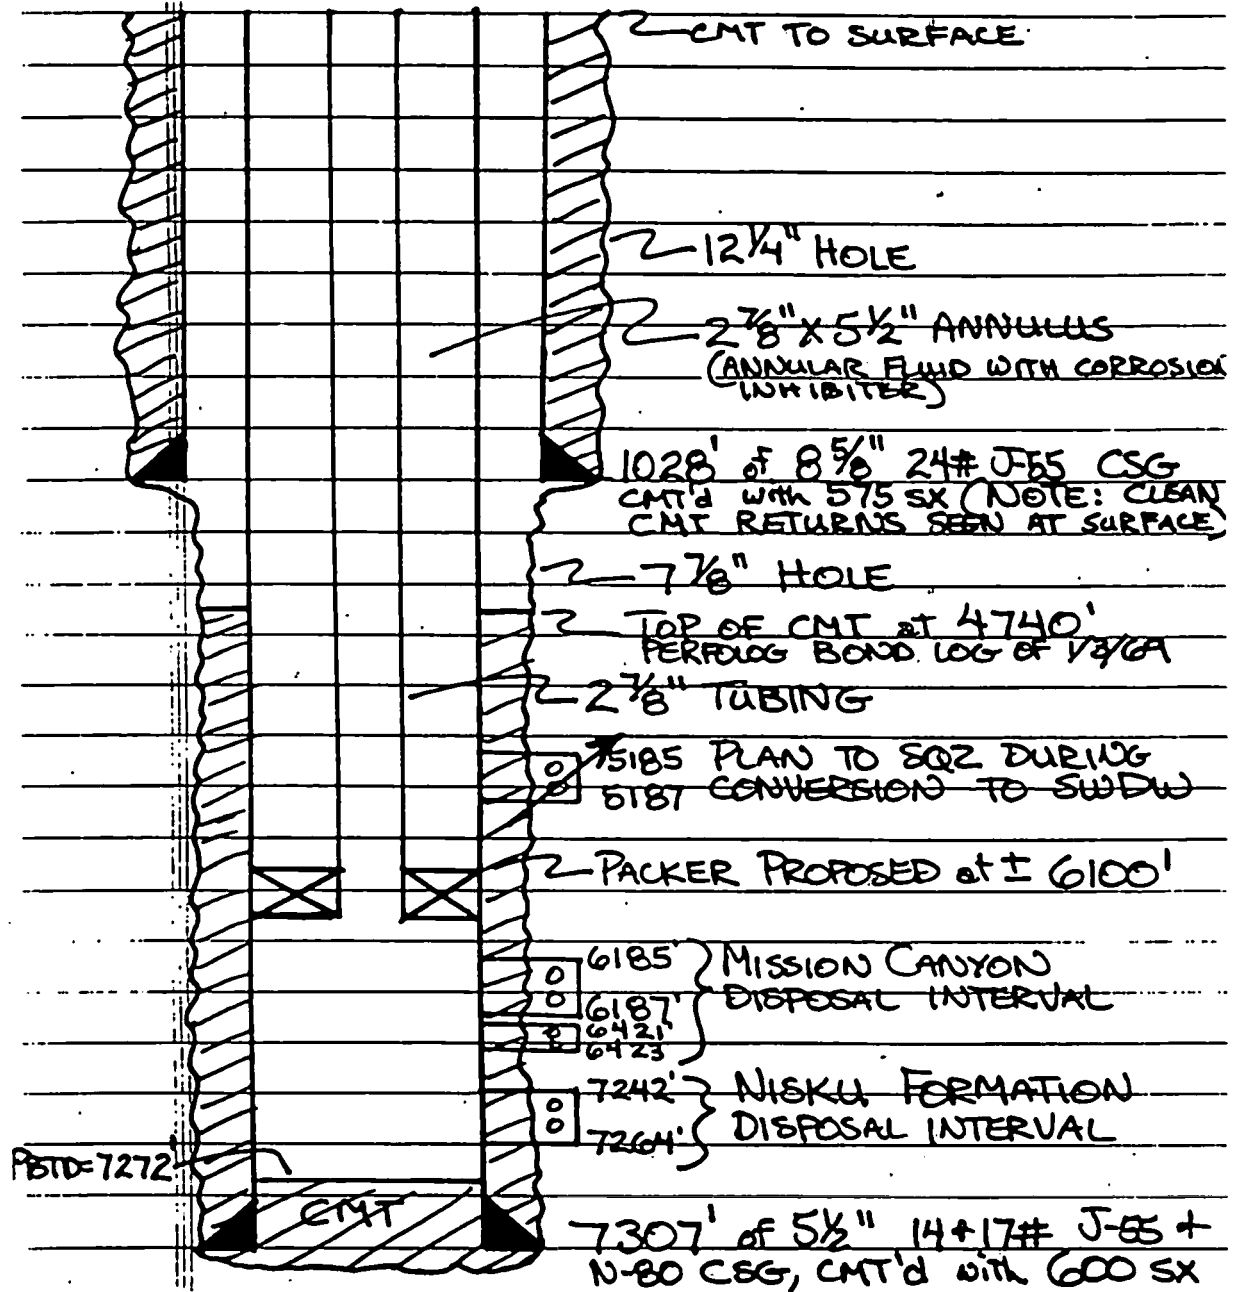 CMT TO SURFACE
12 1/4" HOLE
2 7/8" X 5 1/2" ANNULUS
(ANNULAR FLUID WITH CORROSION
INHIBITER)
1028' of 8 5/8" 24# J-55 CSG
CMT'd with 575 SX (NOTE: CLEAN
CMT RETURNS SEEN AT SURFACE)
7 7/8" HOLE
TOP OF CMT at 4740'
PERFOLOG BOND LOG OF 1/3/69
2 7/8" TUBING
5185 PLAN TO SQZ DURING
5187 CONVERSION TO SWDW
PACKER PROPOSED at ± 6100'
6185' MISSION CANYON
6187' DISPOSAL INTERVAL
6421'
6423
7242' NISKU FORMATION
7264' DISPOSAL INTERVAL
PBTD=7272
CMT
7307' of 5 1/2" 14+17# J-55 +
N-80 CSG, CMT'd with 600 SX